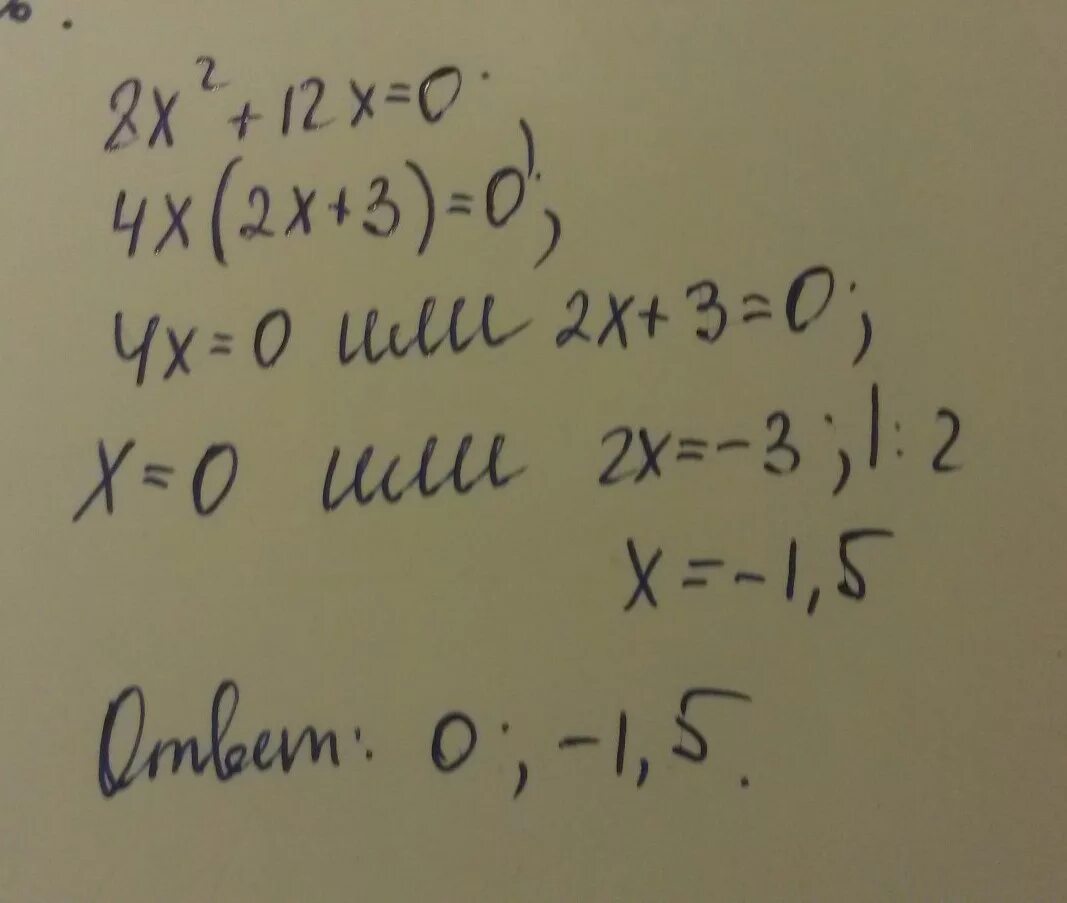 8x² + 12x = 0;
4x(2x+3) = 0;
4x = 0 или 2x + 3 = 0;
x = 0 или 2x = -3; |: 2
x = -1,5
Ответ: 0; -1,5.